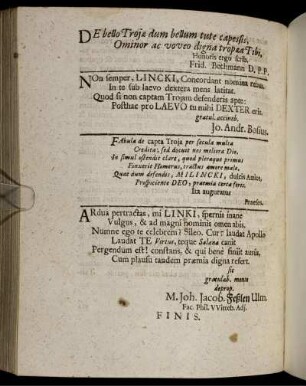 DE bello Troja dum bellum tute capessis,
Ominor ac voveo digna tropæa Tibi.
Honoris ergo scrib.
Frid. Bechmann D. P. P.
NOn semper, LINCKI, Concordant nomina rebus.
In te sub laevo dextera mens latitat.
Quod si non captam Trojam defenderis apte:
Posthac pro LAEVO tu mihi DEXTER eris.
gratul. accineb.
Jo. Andr. Bosius.
FAbula de capta Troja per secula multa
Credita, sed docuit nos meliora Dio,
In simul ostendit clare, quod pleraque primus
Finxerit Homerus, tractus amore malo,
Quae dum defendis, MILINCKI, dulcis Amice,
Prospiciente DEO, præmia certa feres.
Ita auguratur
Præses.
ARdua pertractas, mi LINKI, spernis inane
Vulgus, & ad magni hominis omen abis.
Numne ego te celebrem? Sileo. Cur? laudat Apollo
Laudat TE Virtus, teque Salana canit
Pergendum est! constans, & qui bene finiit amussim,
Cum plausu tandem præmia digna refert.
sic
gratulab. munu
deprop.
M. Joh. Jacob. Feßlen Ulm.
Fac. Phil. VViteb. Adj.
FINIS.